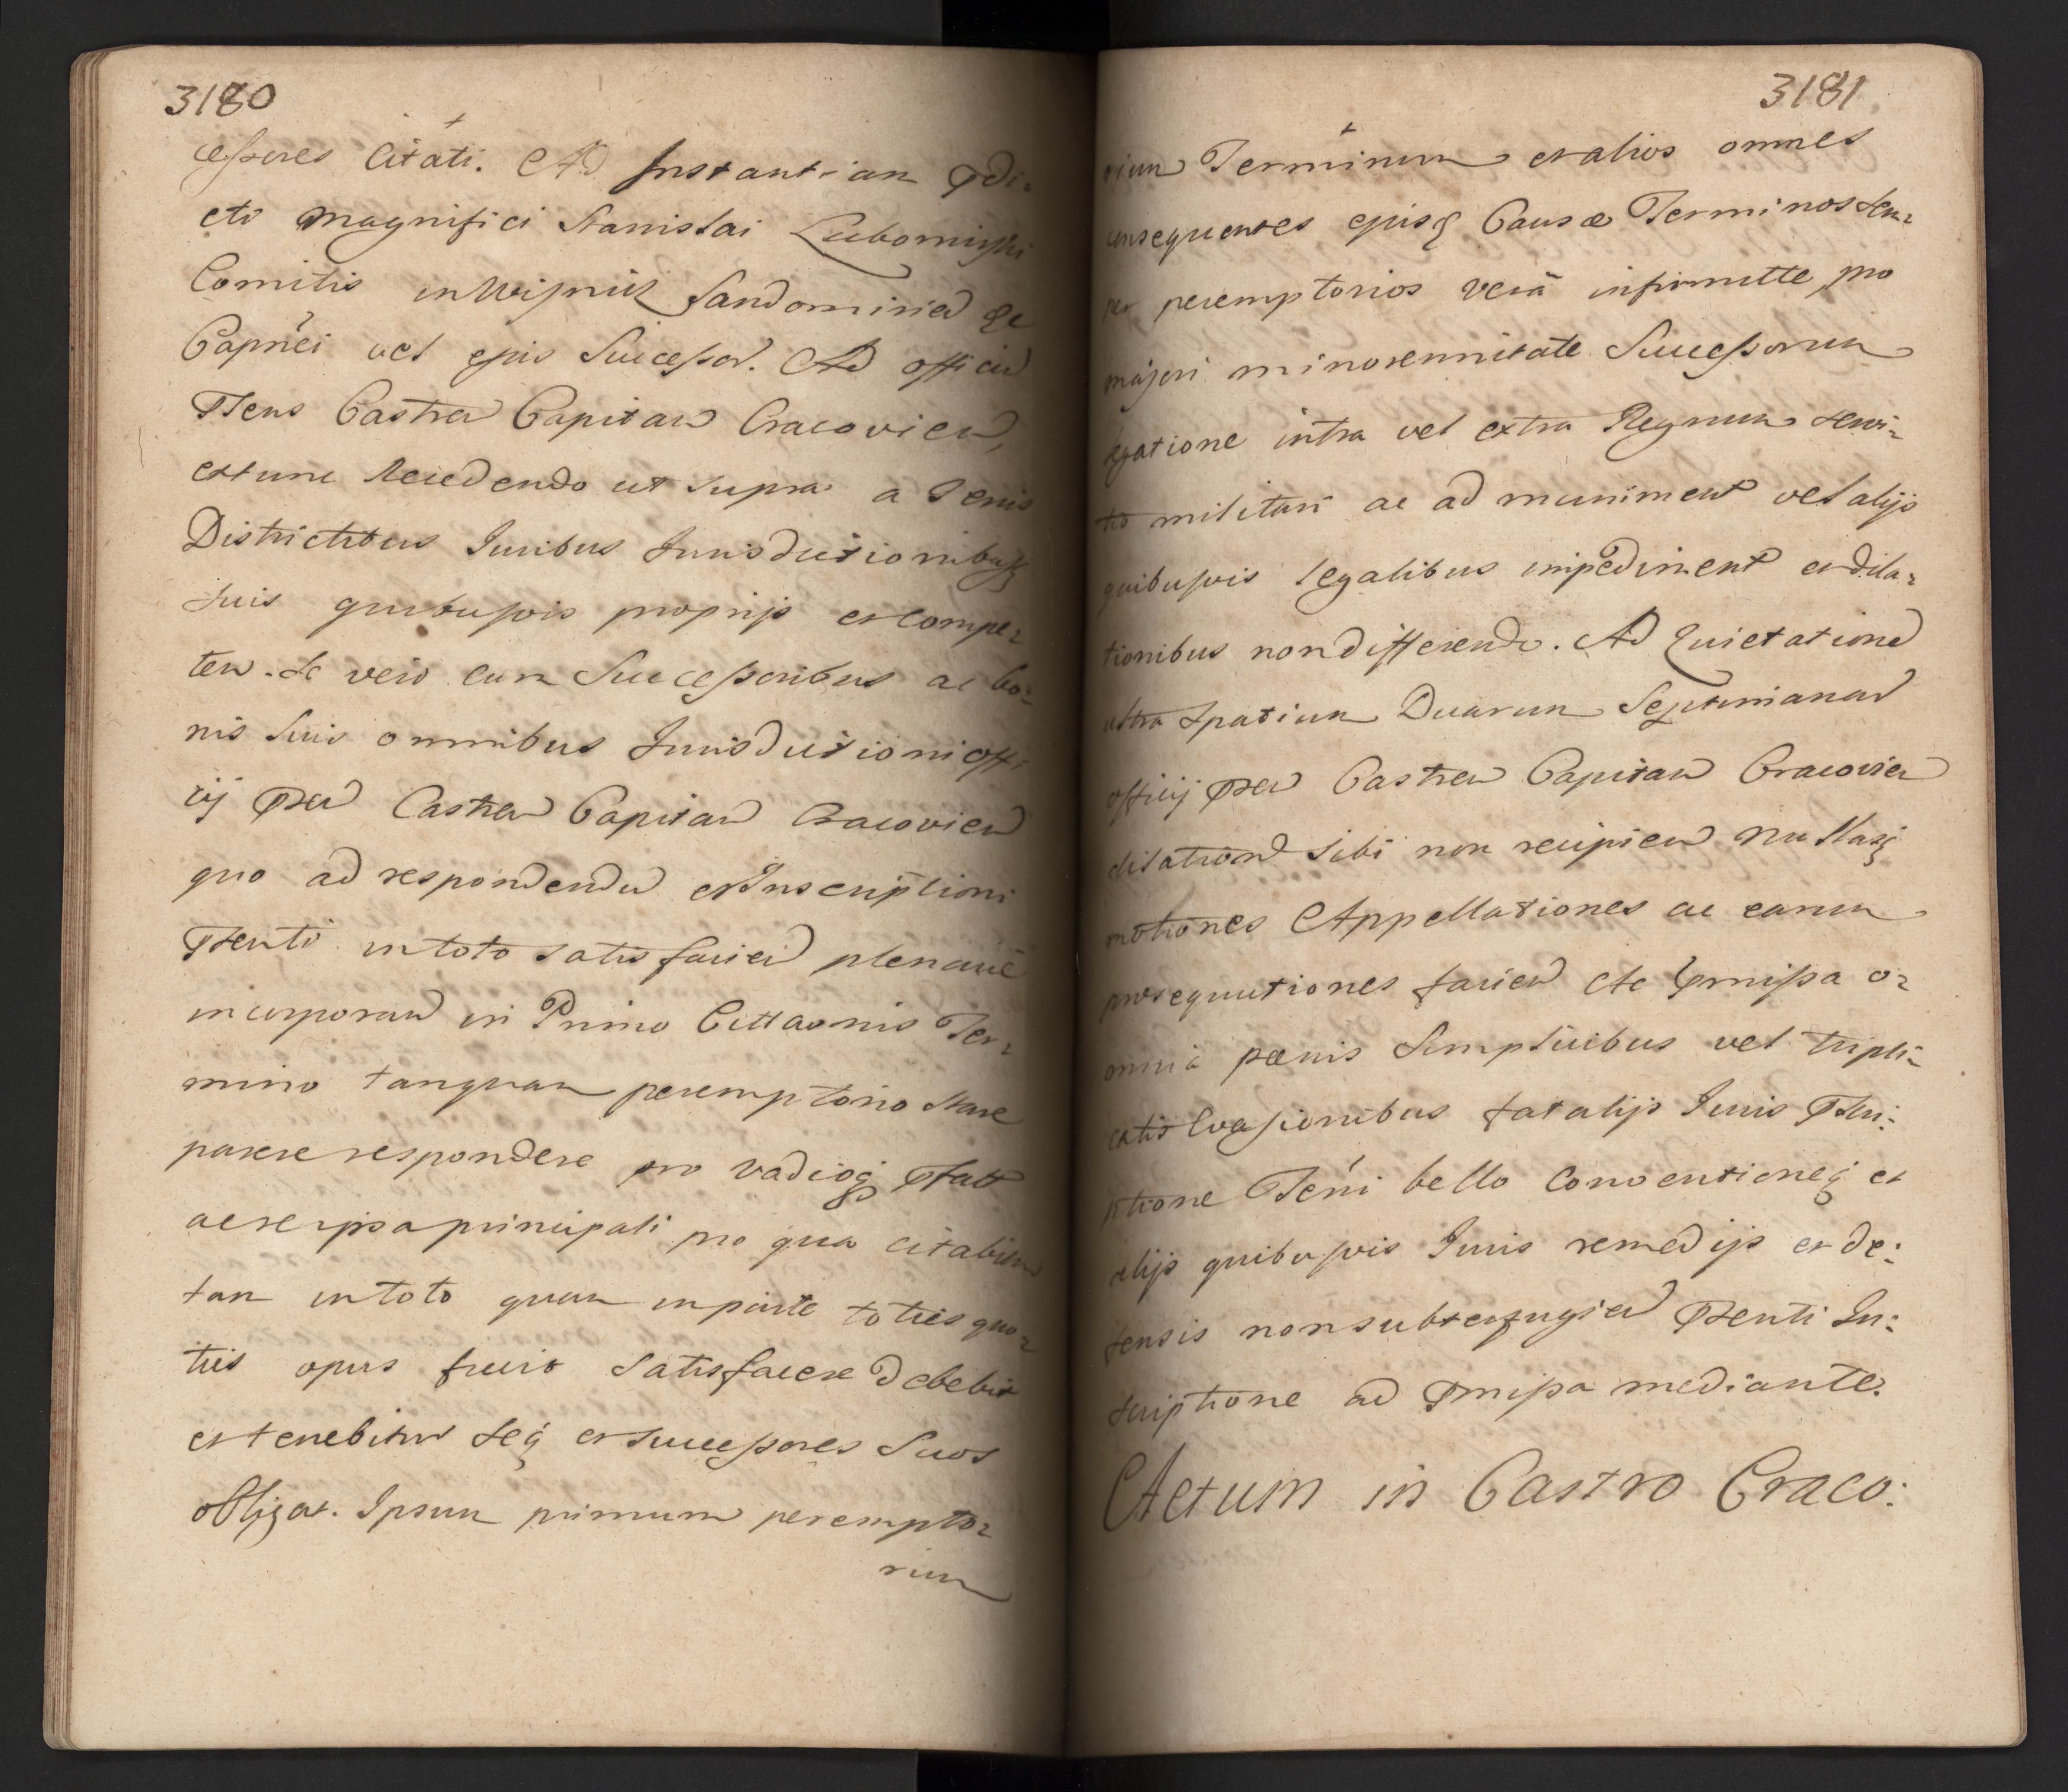 3180
cessores Citati. Ad Instantiam Pdi=
cti Magnifici Stanislai Lubomirski
Comitis in Wisnicz Sandomirien &c
Capnei vel ejus Successor. Ad officiu
Psens Castren Capitan Cracovien,
extunc Recedendo ut supra a Tenis
Districtibus Juribus Jurisdictionibusq
suis quibusvis proprijs et compe=
ten. Se vero cum Successoribus ac bo=
nis suis omnibus Jurisdictioni offi
cij Psen Castren Capitan Cracovien
quo ad respondendu et Inscriptioni
Psenti in toto satisfaciend plenarie
incorporand in Primo Cittaonis Ter=
mino tanquam peremptorio stare
parere respondere pro vadioq Pfatt
ac re ipsa principali pro qua citabitur
tam in toto quam in parte toties quo=
ties opus fuerit satisfacere debebit
et tenebitur seq et successores suos
obligat. Ipsum primum perempto=
rium
3181
rium Terminum et alios omnes
consequentes ejusq Causæ Terminos sem=
per peremptorios vera infirmitte pro
majori minorennitate Successorum
legatione intra vel extra Regnum servi=
tio militari ac ad muniment vel alijs
quibusvis legalibus impediment et dila=
tionibus non differendo. Ad Quietationem
ultra spatium Duarum Septimanar
officij Psen Castren Capitan Cracovien
dilation sibi non recipien nullasq
motiones Appellationes ac earum
prosequutiones facien Ac Pmissa o=
omnia pœnis simplicibus vel tripli=
catis Evasionibus fatalijs Juris Pscri=
ptione Teni bello Conventioneq et
alijs quibusvis Juris remedijs et de=
fensis non subterfugien Psenti In=
scriptione ad Pmissa mediante.
Actum in Castro Craco: